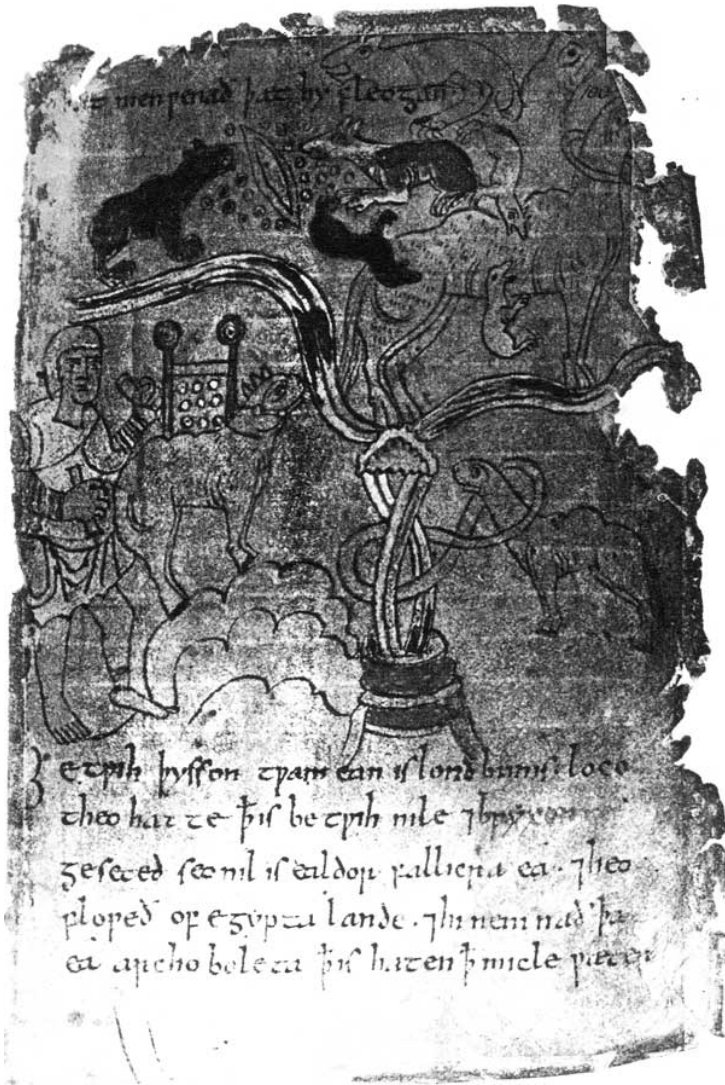 men ƿenað þæt hy fleogan
Betƿih þysson tƿam ean is londbunis loco
theo hatte ꝥ is betƿih nile ⁊ bryxon
geseted seo nil is ealdor fallicra ea · ⁊ heo
floƿeð of egypta lande · ⁊ hi nemnað þa
ea archoboleta ꝥ is haten ꝥ micle ƿæter